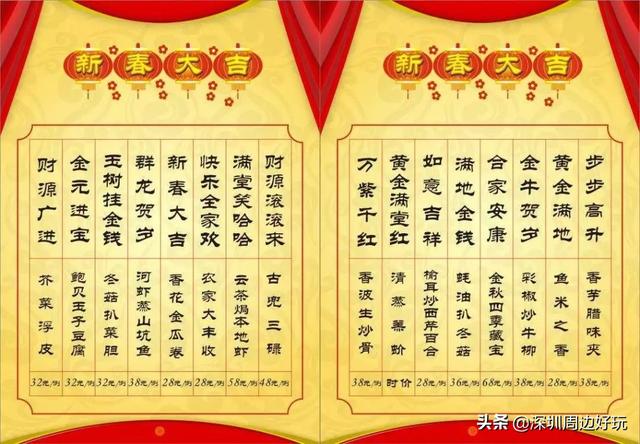 新春大吉
财源滚滚来
古兜三碌
48元/例
满堂笑哈哈
云茶焗本地虾
58元/例
快乐全家欢
农家大丰收
28元/例
新春大吉
香花金瓜卷
28元/例
群龙贺岁
河虾蒸山坑鱼
38元/例
玉树挂金钱
冬菇扒菜胆
32元/例
金元进宝
鲍贝玉子豆腐
32元/例
财源广进
芥菜浮皮
32元/例
新春大吉
步步高升
香芋腊味夹
38元/例
黄金满地
鱼米之香
28元/例
金牛贺岁
彩椒炒牛柳
38元/例
合家安康
金秋四季藏宝
68元/例
满地金钱
蚝油扒冬菇
36元/例
如意吉祥
榆耳炒西芹百合
28元/例
黄金满堂红
清蒸
时价
万紫千红
香波生炒骨
38元/例
头条 @深圳周边好玩